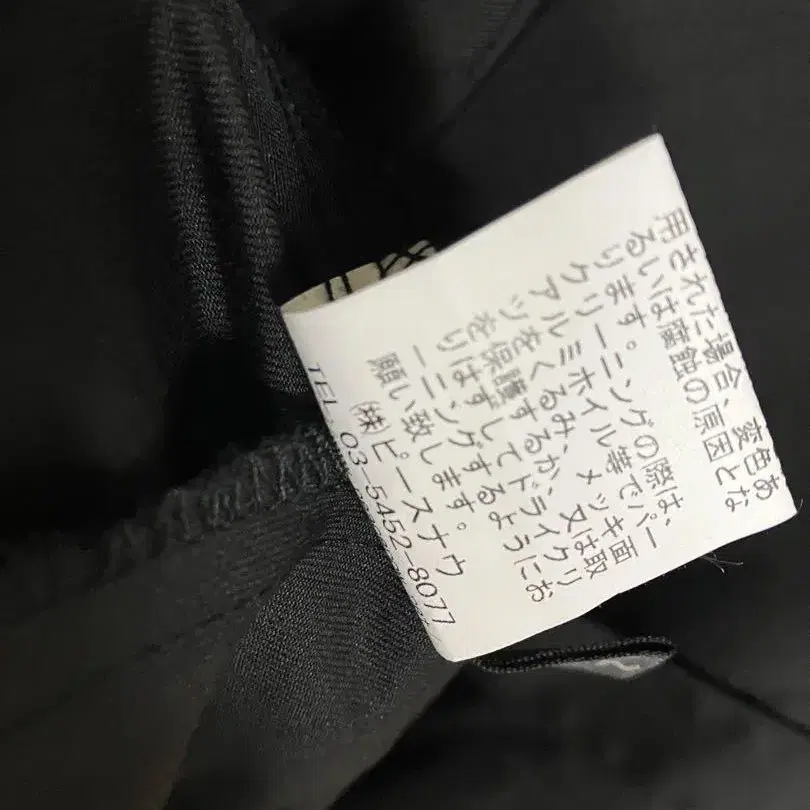 用された場合、変色あ
るいは腐蝕の原因とな
ります。
クリーニングの際は、
アルミホイル等でパー
ツをくるみ、メッキ面
を保護するか、又は取
りはずしてドライクリ
ーニングするようにお
願い致します。
(株)ピースナウ
TEL 03-5452-8077